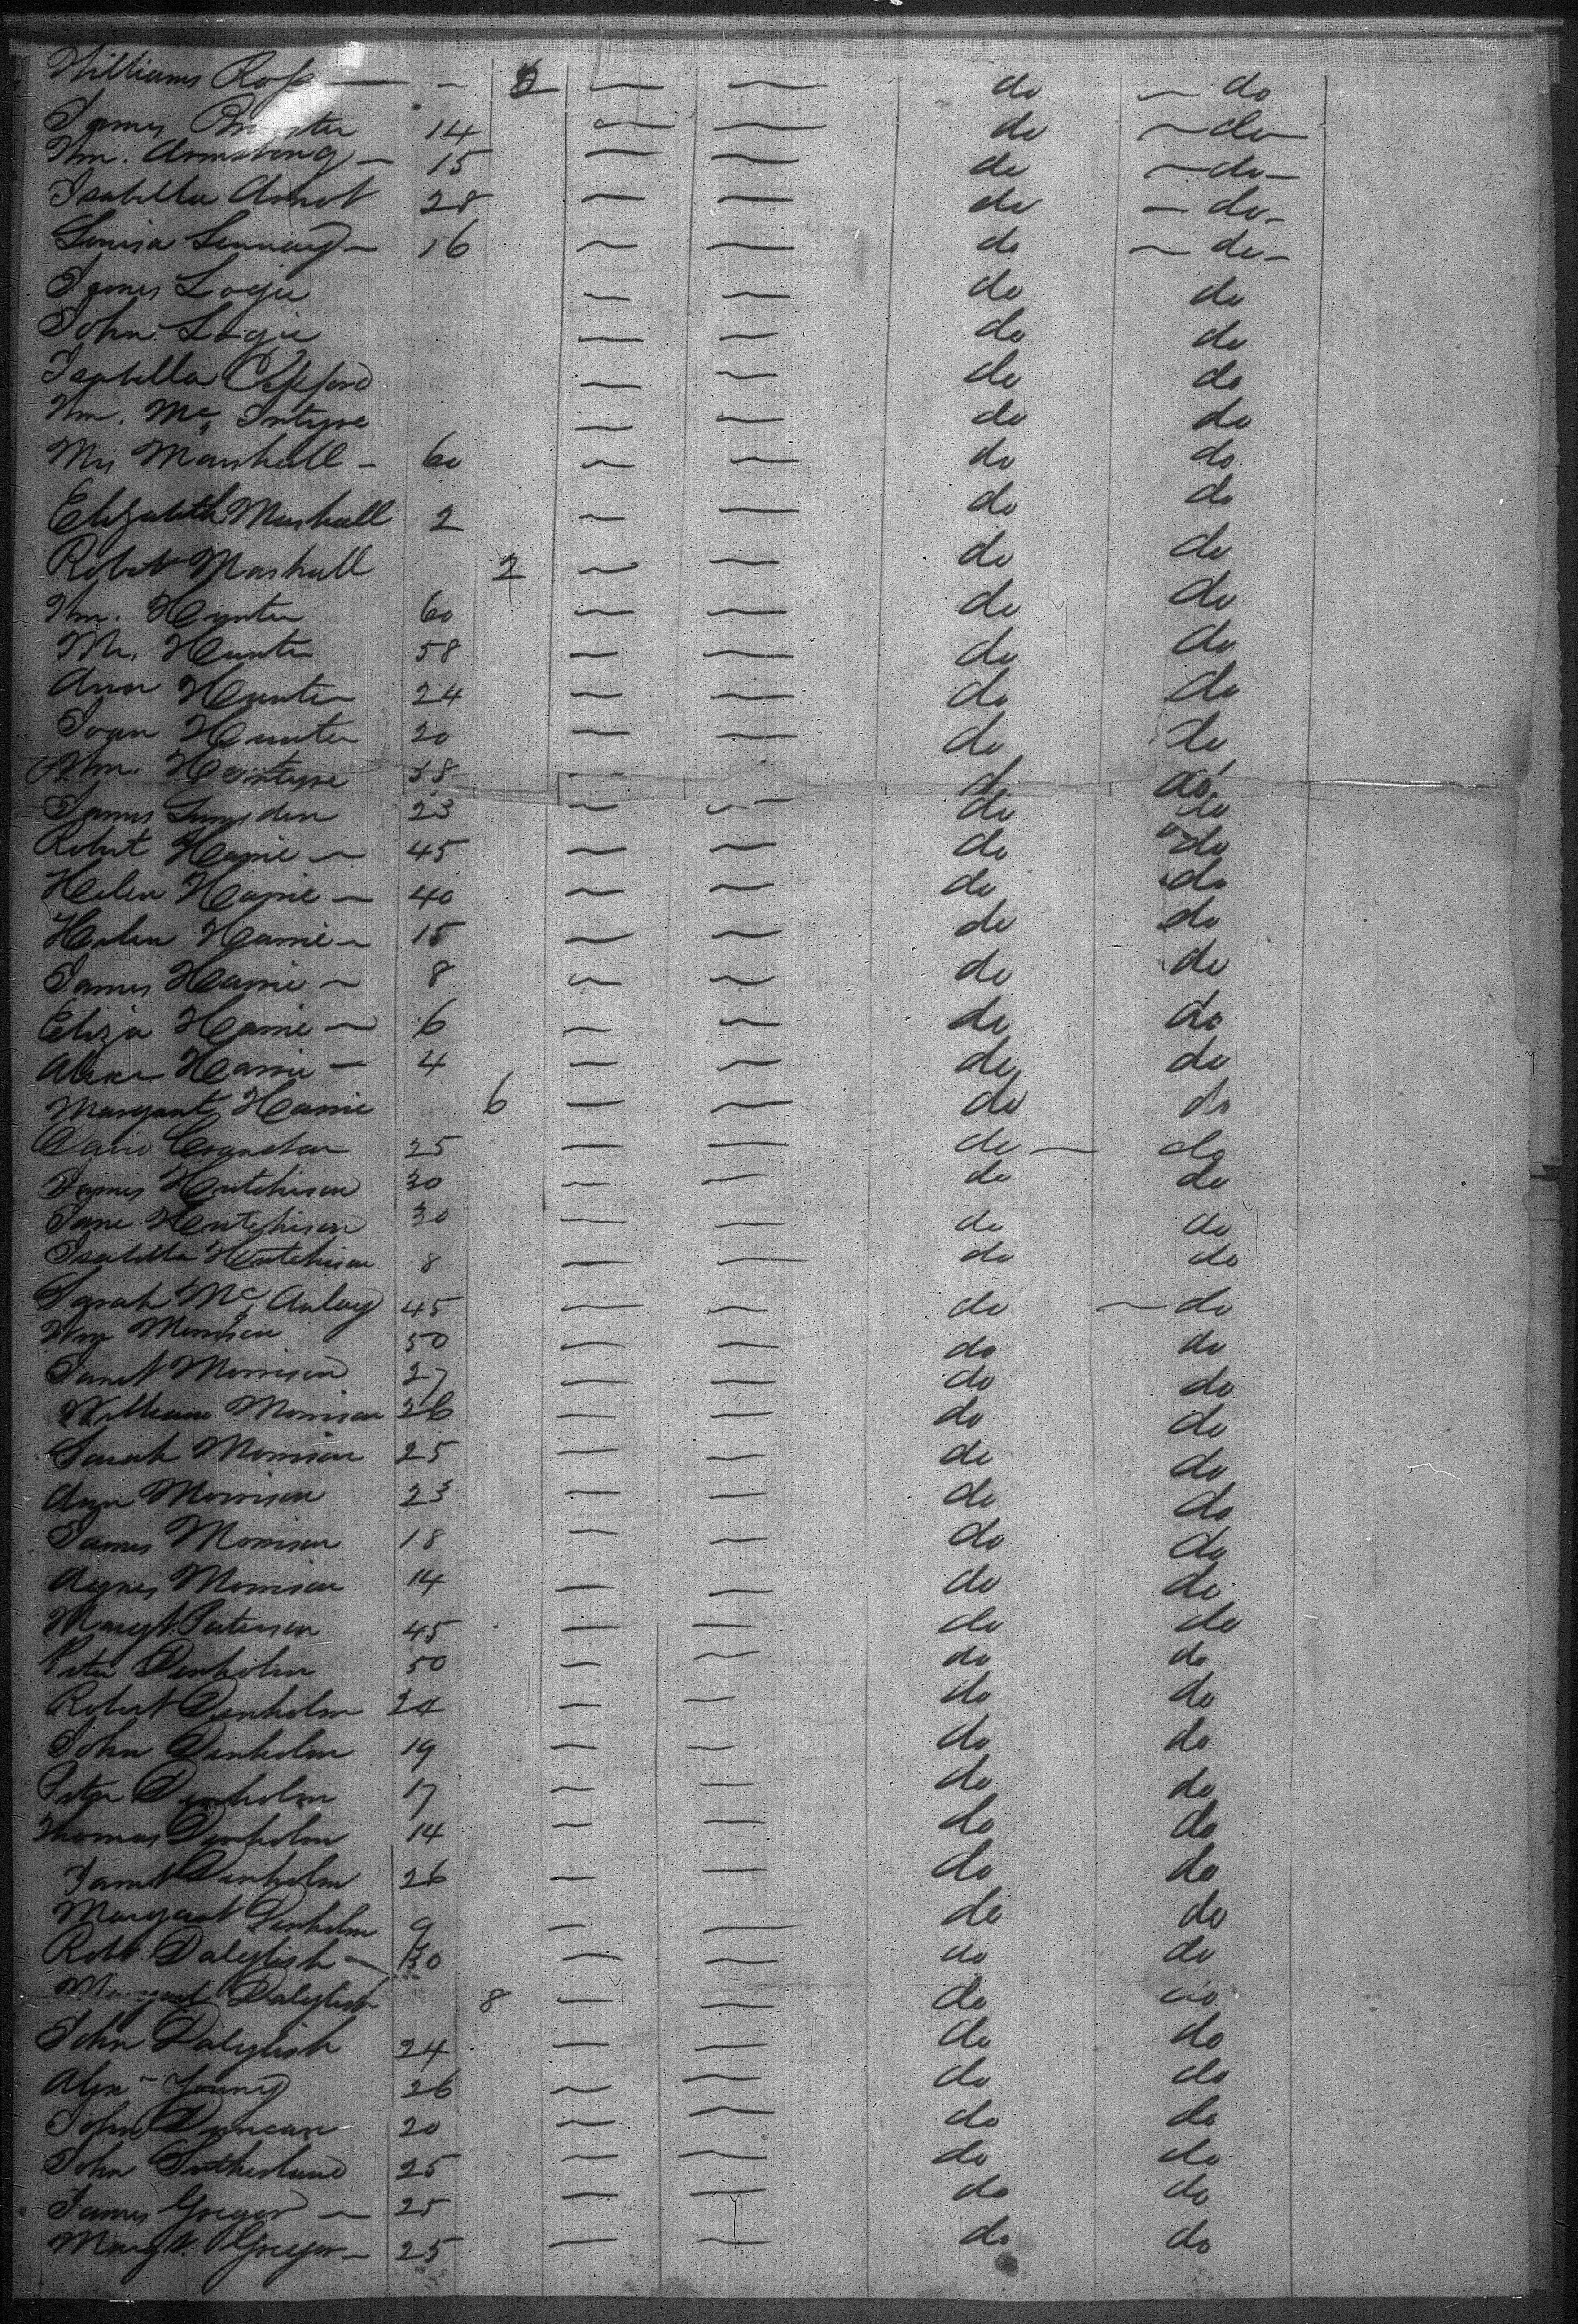 Williams Ross — - 2 — — do — do
James 14 — — do — do —
Wm. Armstrong — 15 — — do — do —
Isabella Arnot 28 — — do — do -
Louisa — 16 — — do — do -
James Logie — — do do
John Logie — — do do
Isabella — — do do
Wm. Mc Intyre — — do do
Mrs Marshall - 60 — — do do
Elizabeth Marshall 2 — — do do
Robert Marshall 2 — — do do
Wm. Hunter 60 — — do do
Mrs. Hunter 58 — — do do
Ann Hunter 24 — — do do
Joan Hunter 20 — — do do
Wm. 18 — — do do
James Lumsden 23 — — do do
Robert Hassie — 45 — — do do
Helen Hassie — 40 — — do do
Helen Hassie — 15 — — do do
James Hassie — 8 — — do do
Eliza Hassie — 6 — — do do
Hassie — 4 — — do do
Margaret Hassie 6 — — do do
David Cranston 25 — — do — do
James Hutchison 30 — — do do
Jane Hutchison 30 — — do do
Isabella Hutchison 8 — — do do
Sarah Mc Aulay 45 — — do — do
Wm Morrison 50 — — do do
Janet Morrison 27 — — do do
William Morrison 26 — — do do
Sarah Morrison 25 — — do do
Ann Morrison 23 — — do do
James Morrison 18 — — do do
Agnes Morrison 14 — — do do
Margt. Paterson 45 — — do do
Peter Denholm 50 — — do do
Robert Denholm 24 — — do do
John Denholm 19 — — do do
Peter Denholm 17 — — do do
Thomas Denholm 14 — — do do
Janet Denholm 26 — — do do
Margaret Denholm 9 — — do do
Robt. Dalglish — 30 — — do do
Margaret Dalglish 8 — — do do
John Dalglish 24 — — do do
Alex Young 26 — — do do
John Duncan 20 — — do do
John Sutherland 25 — — do do
James Gregor — 25 — — do do
Margt. Gregor — 25 — — do do